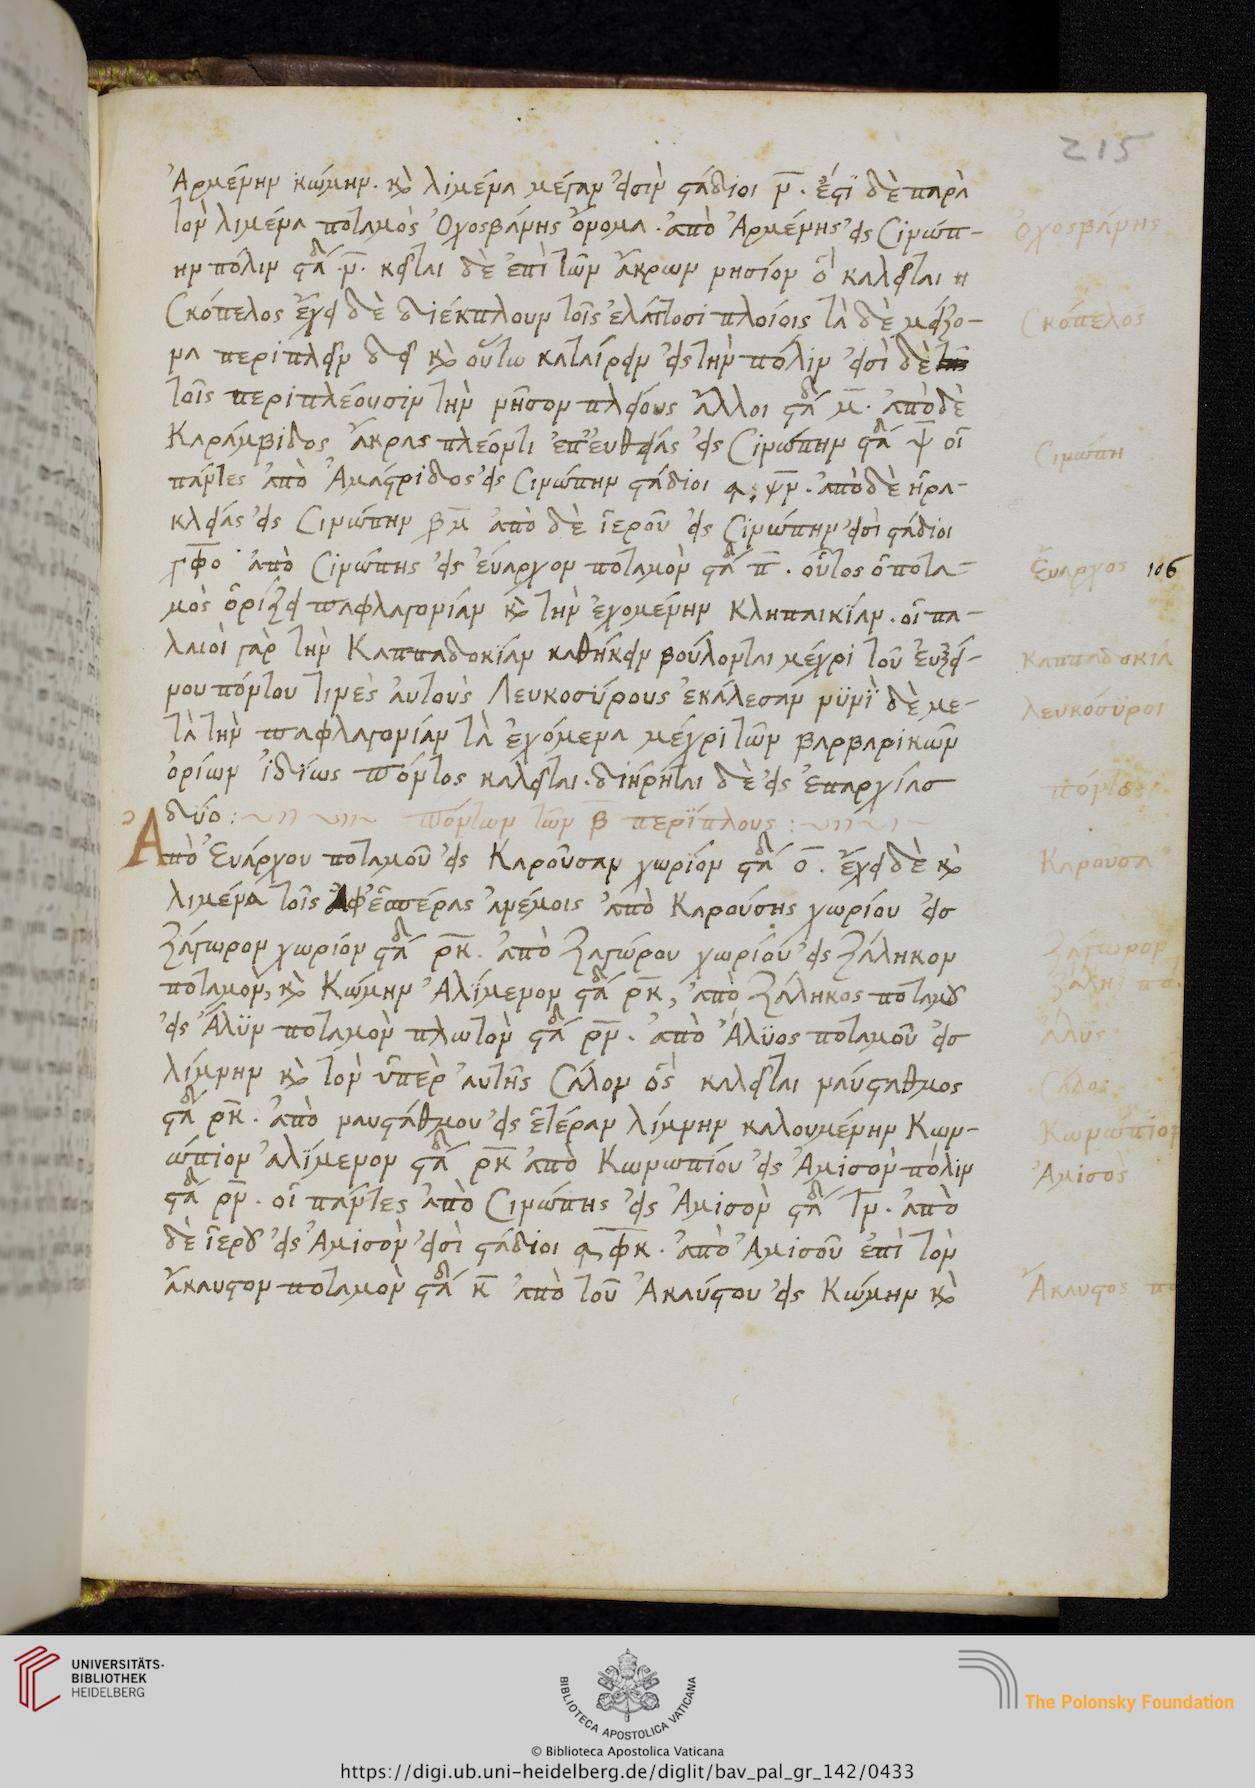 215
Ἀρμένην κώμην. κὴ λιμένα μέγαν εἰσὶν ϛάδιοι ν̅. ἔϛϊ δὲ παρὰ
τὸν λιμένα ποταμὸς Ὀχοσβάνης ὄνομα. ἀπὸ Ἀρμένης εἰς Σινώπ-
ην πόλιν ϛά^δ. ν̅. κεῖται δὲ ἐπὶ τῶν ἄκρων νησίον ὃ καλεῖται
Σκόπελος ἔχει δὲ διέκπλουν τοῖς ἐλάττοσι πλοίοις τὰ δὲ μείζο-
να περιπλεῖν δεῖ κὴ οὕτω καταίρειν εἰς τὴν πόλιν εἰσὶ δὲ
τοῖς περιπλέουσιν τὴν νῆσον πλείους ἄλλοι ϛά^δ μ̅. ἀπὸ δὲ
Καράμβιδος ἄκρας πλέοντι ἐπ' εὐθείας εἰς Σινώπην ϛά^δ ψ̅ οἱ
πάντες ἀπὸ Ἀμάϛριδος εἰς Σινώπην ϛάδιοι ͵αψν. ἀπὸ δὲ ἡρα-
κλείας εἰς Σινώπην ͵βμ̅ ἀπὸ δὲ ἱεροῦ εἰς Σινώπην εἰσὶ ϛάδιοι
͵γφο ἀπὸ Σινώπης εἰς ἐύαρχον ποταμὸν ϛά^δ π̅. οὗτος ὁ ποτα-
μὸς ὁρίζει παφλαγονίαν κὴ τὴν ἐχομένην Κληπαικίαν. οἱ πα-
λαιοὶ γὰρ τὴν Καππαδοκίαν καθήκειν βούλονται μέχρι τοῦ ἐυξεί-
νου πόντου τινες ἀυτοὺς Λευκοσΰρους ἐκάλεσαν νϋνϊ δὲ με-
τὰ τὴν παφλαγονίαν τὰ ἐχόμενα μέχρι τῶν βαρβαρικῶν
ὁρίων ἰδίως πόντος καλεῖται. διήρηται δὲ εἰς ἐπαρχίασ
δΰο : πόντων τῶν β̅ περίπλους :
Ἀπὸ Ἐυάρχου ποταμοῦ εἰς Καροῦσαν χωρίον ϛά^δ ο̅. ἔχει δὲ κὴ
λιμένα τοῖς ἀφ' ἑσπέρας ἀνέμοις ἀπὸ Καρούσης χωρίου εἰσ
Ζάγωρον χωρίον ϛά^δ ρκ̅. ἀπὸ Ζαγώρου χωρίου εἰς Ζάληκον
ποταμόν, κὴ Κώμην Ἀλίμενον ϛά^δ ρκ̅, ἀπὸ Ζάληκος ποταμȣ
εἰς Ἅλϋν ποταμὸν πλωτὸν ϛά^δ ρν̅. ἀπὸ Ἅλϋος ποταμοῦ εἰσ
λίμνην κὴ τὸν ὑπὲρ ἀυτῆς Σάλον ὃς καλεῖται ναύϛαθμος
ϛά^δ ρκ̅. ἀπὸ ναυϛάθμου εἰς ἑτέραν λίμνην καλουμένην Κων-
ώπιον ἀλίμενον ϛά^δ ρκ̅ ἀπὸ Κωνωπίου εἰς Ἀμισὸν πόλιν
ϛά^δ ρν̅. οἱ πάντες ἀπὸ Σινώπης εἰς Ἀμισὸν ϛά^δ ͵τν. ἀπὸ
δὲ ἱερȣ εἰς Ἀμισὸν εἰσὶ ϛάδιοι ͵δφκ. ἀπὸ Ἀμισοῦ ἐπὶ τὸν
ἄκαυϛον ποταμὸν ϛά^δ κ̅ ἀπὸ τοῦ Ἀκαύϛου εἰς Κώμην κὴ
Ὀχοσβάνης
Σκόπελος
Σινώπη
Ἔυαρχος 106
καππαδοκία
λευκόσϋροι
πόντος
Καροῦσα
Ζάγωρον
Ζάλη
ἅλϋς
Σάλος
Κωνώπιον
Ἀμισὸς
Ἄκαυϛος πο
UNIVERSITÄTS-
BIBLIOTHEK
HEIDELBERG
BIBLIOTECA APOSTOLICA VATICANA
The Polonsky Foundation
© Biblioteca Apostolica Vaticana
https://digi.ub.uni-heidelberg.de/diglit/bav_pal_gr_142/0433